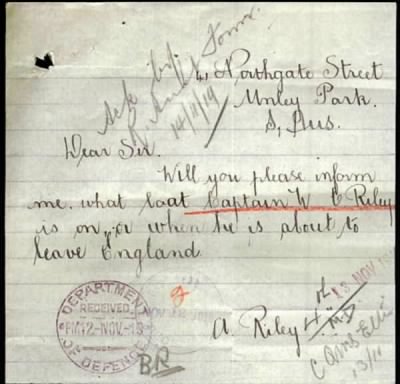 41 Northgate Street
Unley Park.
S, Aus.
Dear Sir.
Will you please inform
me, what boat Captain W C Riley
is on, or when he is about to
leave England.
A. Riley
14/11/19
13 NOV 19
DEPARTMENT
RECEIVED
PM 12-NOV.-19
OF DEFENCE
BR
13/11